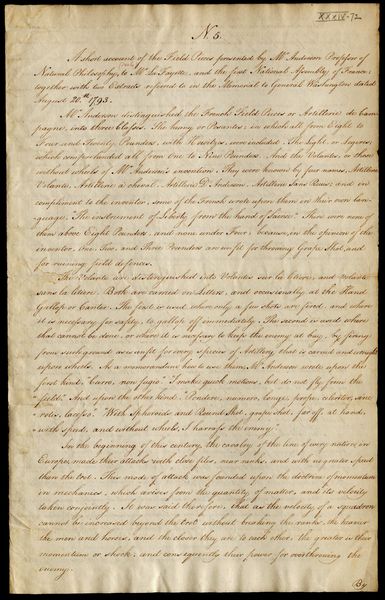 XXXIV-72
No. 5.
A short account of the Field Pieces presented by Mr. Anderson Professor of
Natural Philosophy, to Mr. La Fayette, and the first National Assembly of France;
together with two Extracts refered to in the Memorial to General Washington dated
August 20.th 1793.
Mr. Anderson distinguished the French Field Pieces or Artillerie de Cam-
pagne, into three Classes. The heavy or Pesantes; in which all from Eight to
Four and Twenty Pounders, with Howitzes, were included. The Light or Legeres,
which comprehended all from One to Nine Pounders. And the Volantes, or those
without wheels of Mr. Anderson's invention. They were known by four names, Artillerie
Volante, Artillerie a cheval, Artillerie D'Anderson, Artillerie Sans Roues; and in
compliment to the inventor, some of the French wrote upon them in their own lan-
guage "The instrument of Liberty from the hand of Science." There were none of
them above Eight Pounders, and none under Four; because, in the opinion of the
inventor, One, Two, and Three Pounders are unfit for throwing Grape Shot, and
for ruining field defences.
The Volante are distinguished into Volantes sur la litiere, and volante
sans la litiere. Both are carried on Litters, and occasionally at the Hand
Gallop or Canter. The first is used where only a few shots are fired, and where
it is necessary for safety, to gallop off immediately. The second is used where
that cannot be done, or where it is necessary to keep the enemy at bay, by firing
from such ground as is unfit for every species of Artillery that is carried and wrought
upon wheels. As a memorandum how to use them, Mr. Anderson wrote upon the
first kind, "Curro, non fugio." "I make quick motions, but do not fly from the
field." And upon the other kind, "Pondere, numero, longe, prope, celeriter, sine
rotis, lacesso." "With Spheroids and Round Shot, grape shot, far off, at hand,
with speed, and without wheels, I harrass the enemy."
In the beginning of this century, the cavalry of the line of every nation in
Europe, made their attacks with close files, near ranks, and with no greater speed
than the trot. This mode of attack was founded upon the doctrine of momentum
in mechanics, which arises from the quantity of matter, and its velocity
taken conjointly. It was said therefore, that as the velocity of a squadron
cannot be increased beyond the trot without breaking the ranks, the heavier
the men and horses, and the closer they are to each other, the greater is their
momentum or shock; and consequently their power for overthrowing the
enemy.
By